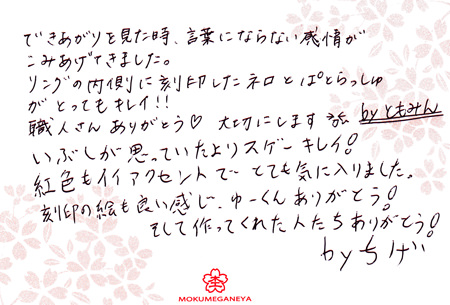 できあがりを見た時、言葉にならない感情が
こみあげてきました。
リングの内側に刻印したネロとぱとらっしゅ
がとってもキレイ!!
職人さんありがとう♡ 大切にします byともみん
いぶしが思っていたよりスゲーキレイ!
紅色もイイアクセントでとても気に入りました。
刻印の絵も良い感じ、ゆーくんありがとう!
そして作ってくれた人たちありがとう!
byちげ
MOKUMEGANEYA